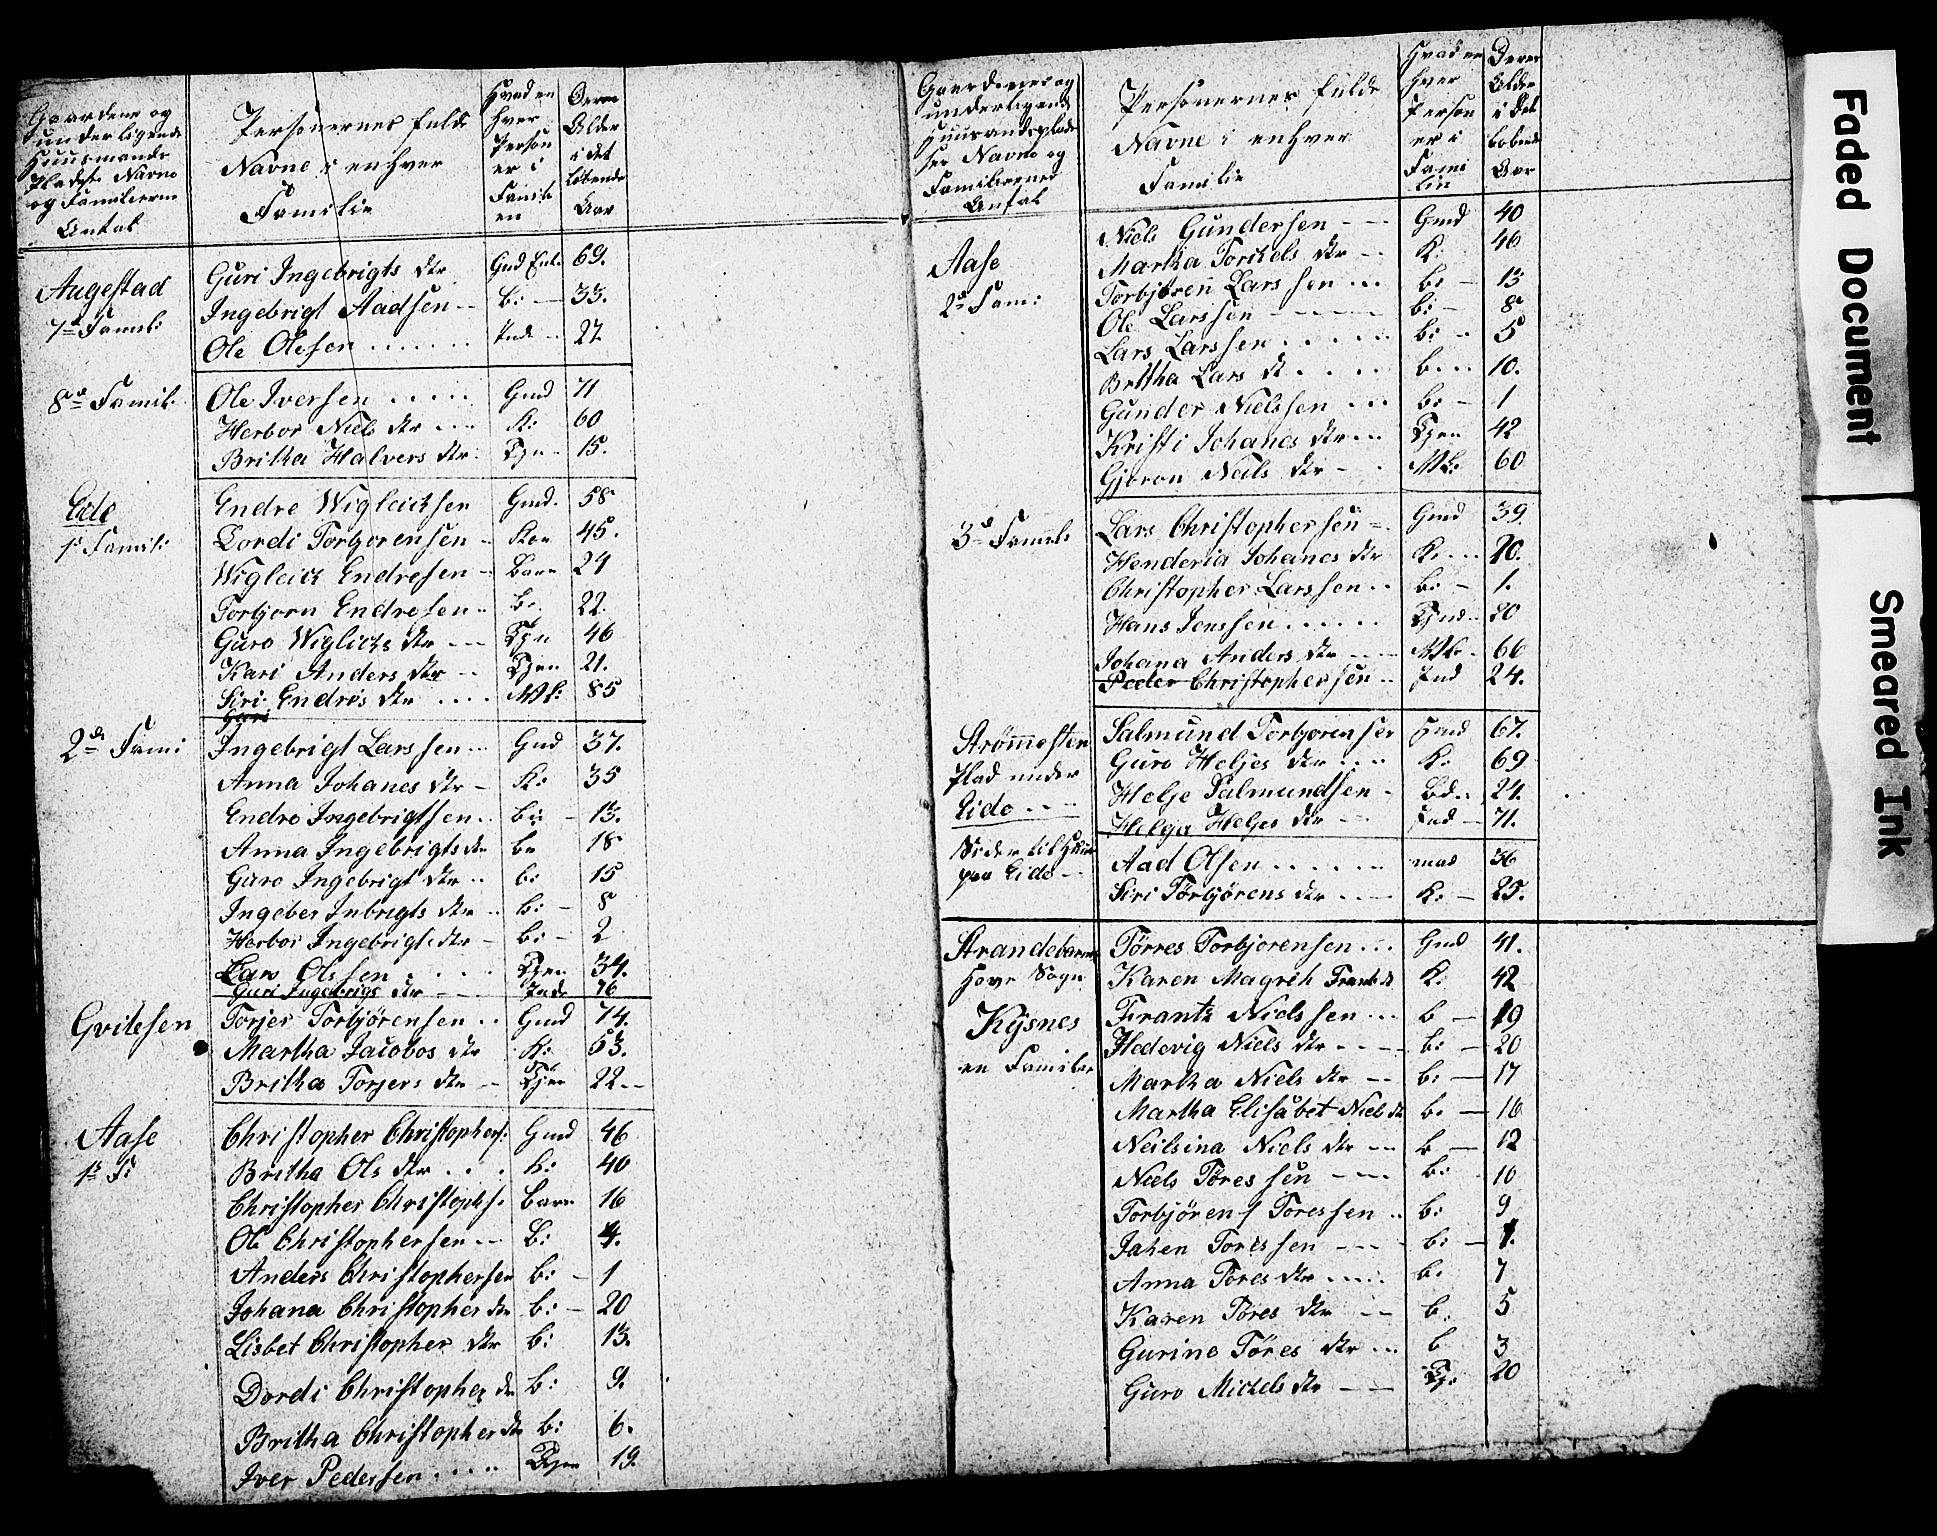 Gaardene og
underligende
Huusmands
Pladse Navne
og Familiernes
Antal
Personernes fulde
Navne i enhver
Familie
Hvad en
hver
Person
er i
Famili
en
Deres
Alder
i det
løbende
Aar
Augestad Guri Ingebrigts dtr Gmd Enk: 69.
7de Famil: Ingebrigt Aadsen -- b: — 33.
Ole Olesen ....... Inds .. 27
8de Famil: Ole Iversen ..... Gmd 71
Herbor Niels dtr ... K: 60
Britha Halvers dtr. Tjn - 15.
Eide Endre Wigleichsen Gmd. 58
1 Famil: Dordi Torbjorensen .. Kon 45.
Wigleich Endresen -- barn 24
Torbjorn Endresen .. b: 22.
Guro Wiglichs dtr --- Tjn 46
Kari Anders dtr -- Tjen 21.
Siri Endres dtr .... Mk: 85
Guri
2de Fami Ingebrigt Larssen ... Gmd 37.
Anna Johanes dtr - K: 35
Endre Ingebrigtsen .. b: - 13.
Anna Ingebrigts dtr b: 18
Guro Ingebrigt dtr .. b: 15
Ingeber Inbrigts dtr .. b: — 8
Herbor Ingebrigts dtr - b: — 2
Lars Olssen ..... Tjen 34.
Guri Ingebrigs dtr --- Inds 76
Gvitesen Torjer Torbjørensen .. Gmd 74.
Martha Jacobos dtr K: 63.
Britha Torjers dtr -- Tjen 22 --
Aase Christopher Christophers: Gmd 46
1te F: Britha Ols dtr .... K: 40
Christopher Christophs: barn 16
Ole Christophersen -- B: 4.
Anders Christophersen b: - 1
Johana Christopher dtr b: — 20
Lisbet Christopher dtr b: 13.
Dordi Christopher dtr b: 9.
Britha Christopher dtr b: 6.
Iver Pedersen ..... Tjen 19.
Gaardenes og
underligende
Huusmandsplad
ser Navne og
Familiernes
Antal
Personernes fulde
Navne i enhver
Familie
Hvad en
hver
Person
er i
Fami
lien
Deres
Alder
i det
løbende
Aar
Niels Gundersen --- Gmd 40
Aase Martha Torkels dtr -- K: 46
2de Fam: Torbjøren Larssen ... b: — 13
Ole Larssen ----- b: — 8
Lars Larssen ...... b: .. 5
Brittha Lars dt ..... b... 10.
Gunder Nielssen ... b: - 1
Kristi Johanes dtr ... Tjen 42
Gjøron Neils dtr - . Mk: 60
3de Famil: Lars Christophersen -. Gmd 39.
Henderia Johanes dtr K: ... 20.
Christopher Larssen .. b: - 1.
Hans Jenssen ...... Tjns .. 20
Johana Anders dtr ---- Mk. - 66
Peder Christophersen .. Ind 24.
Strømmesten Salmund Torbjorensen Hmd 67.
Plad under Guro Heljes dtr .... K: 69
Eide ---- Helje Salmundsen - bd.. 24.
Helga Heljes dtr --- Ind — 71.
Sider til Huus Aad Olsen ...... mand 36
paa Eide -- Siri Torbjørens dtr ..— K: — 25.
Strandebarms Tørres Torbjorensen ... Gmd 41.
Hove Sogn Karen Magreh Frantz dt K: 42
Kysnes Frantz Nielssen ... b — 19
en Familie Hedevig Niels dtr ---- b: — 20
Martha Niels dtr -- b: — 17
Martha Elisabet Niels dt b: — 16
Neilsina Niels dtr --- b — 12
Niels Toressen ---- b: 10
Torbjören Toressen .. b: 9
Jaken Toressen ---- b: — 1.
Anna Tores dtr ..... b. 7
Karen Töres dtr -- b. 5
Gurine Töres dtr ... b 3
Guro Mickels dtr --- Tj: 20
Faded Document
Smeared Ink